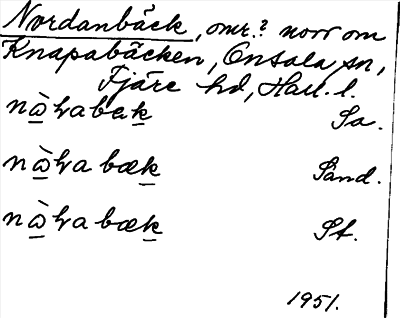 Nordanbäck, omr.? norr om
Knapabäcken, Onsala sn,
Fjäre hd, Hall. l.
nὰꝛabæk Sa.
nὰꝛa bæk Sand.
nὰꝛa bæk St.
1951.